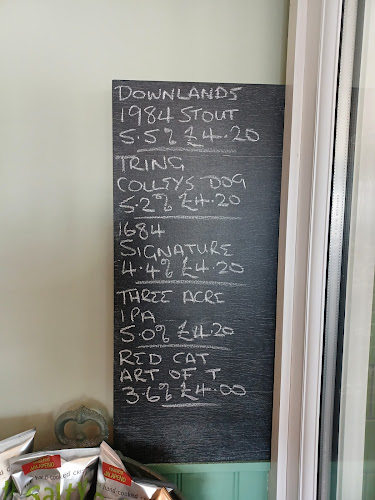 DOWNLANDS
1984 STOUT
5.5% £4.20
TRING
COLLEYS DOG
5.2% £4.20
1684
SIGNATURE
4.4% £4.20
THREE ACRE
IPA
5.0% £4.20
RED CAT
ART OF T
3.6% £4.00
JALAPENO
JALAPENO